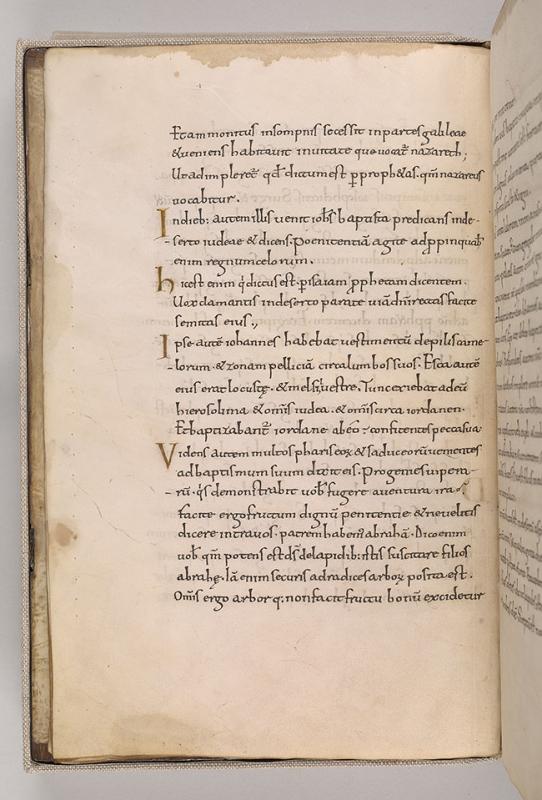 Et ammonitus insompnis secessit inpartes galileae
& ueniens habitauit inciuitate quae uocat̄ nazareth;
Ut adimpleret̄ qđ dictum est p̱ proph&as. qm̄ nazareus
uocabitur.
Indieb: autem illis uenit ioħs baptista predicans inde-
serto iudeae & dicens. Poenitentiā agite adp̱pinquab̄
enim regnum celorum.
hic est enim q̇ dictus est. p̱ isaiam p̱ph&am dicentem.
Uox clamantis indeserto parate uiā dn̄i rectas facite
semitas eius.,
Ipse autē iohannes habebat uestimentū depilis came-
lorum. & zonam pelliciā circa lumbos suos. Esca autē
eius erat locustę. & mel siluestre. Tunc exiebat adeū
hierosolima & om̄is iudea. & om̄is circa iordanen.
Et baptizabant̄ iordane ab eo confitentes peccata sua
Videns autem multos phariseoꝝ & saduceorū uenientes
ad baptismum suum dixit eis. Progenies uipera-
rū. q̇s demonstrabit uob̄ fugere auentura ira
Facite ergo fructum dignū penitentie & neuelitis
dicere intrauos. patrem habem̄ abrahā. Dico enim
uob̄ qm̄ potens est dс̄ delapidib: istis suscitare filios
abrahę. Iā enim securis adradices arboꝝ posita est.
Om̄is ergo arbor q: non facit fructū bonū excidetur